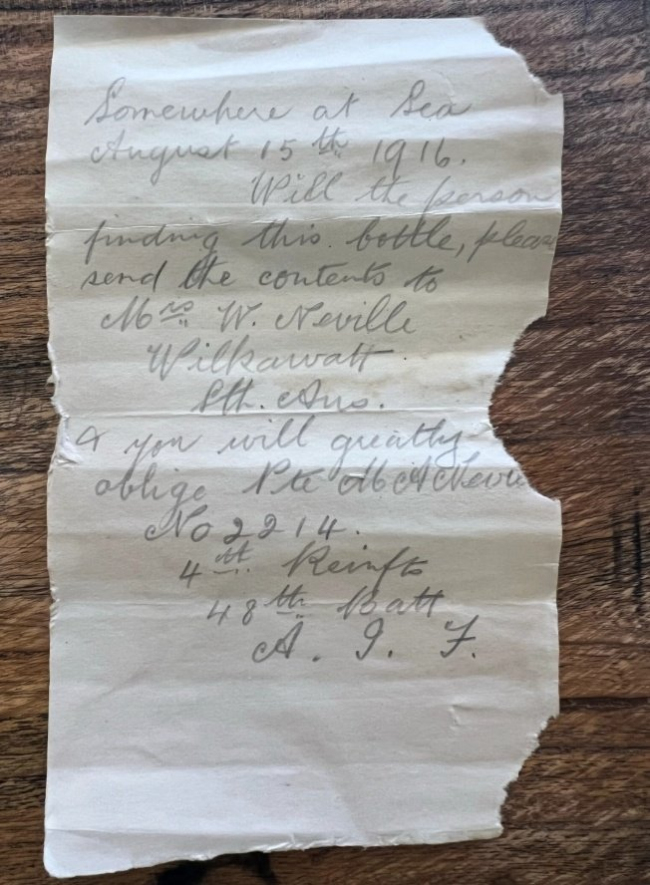 Somewhere at Sea
August 15th 1916.
Will the person
finding this bottle, pleas
send the contents to
Mrs W. Neville
Wilkawatt.
Sth. Aus.
& you will greatly
oblige Pte M A Nevi
No 2214.
4th Reinfts
48th Batt
A. I. F.